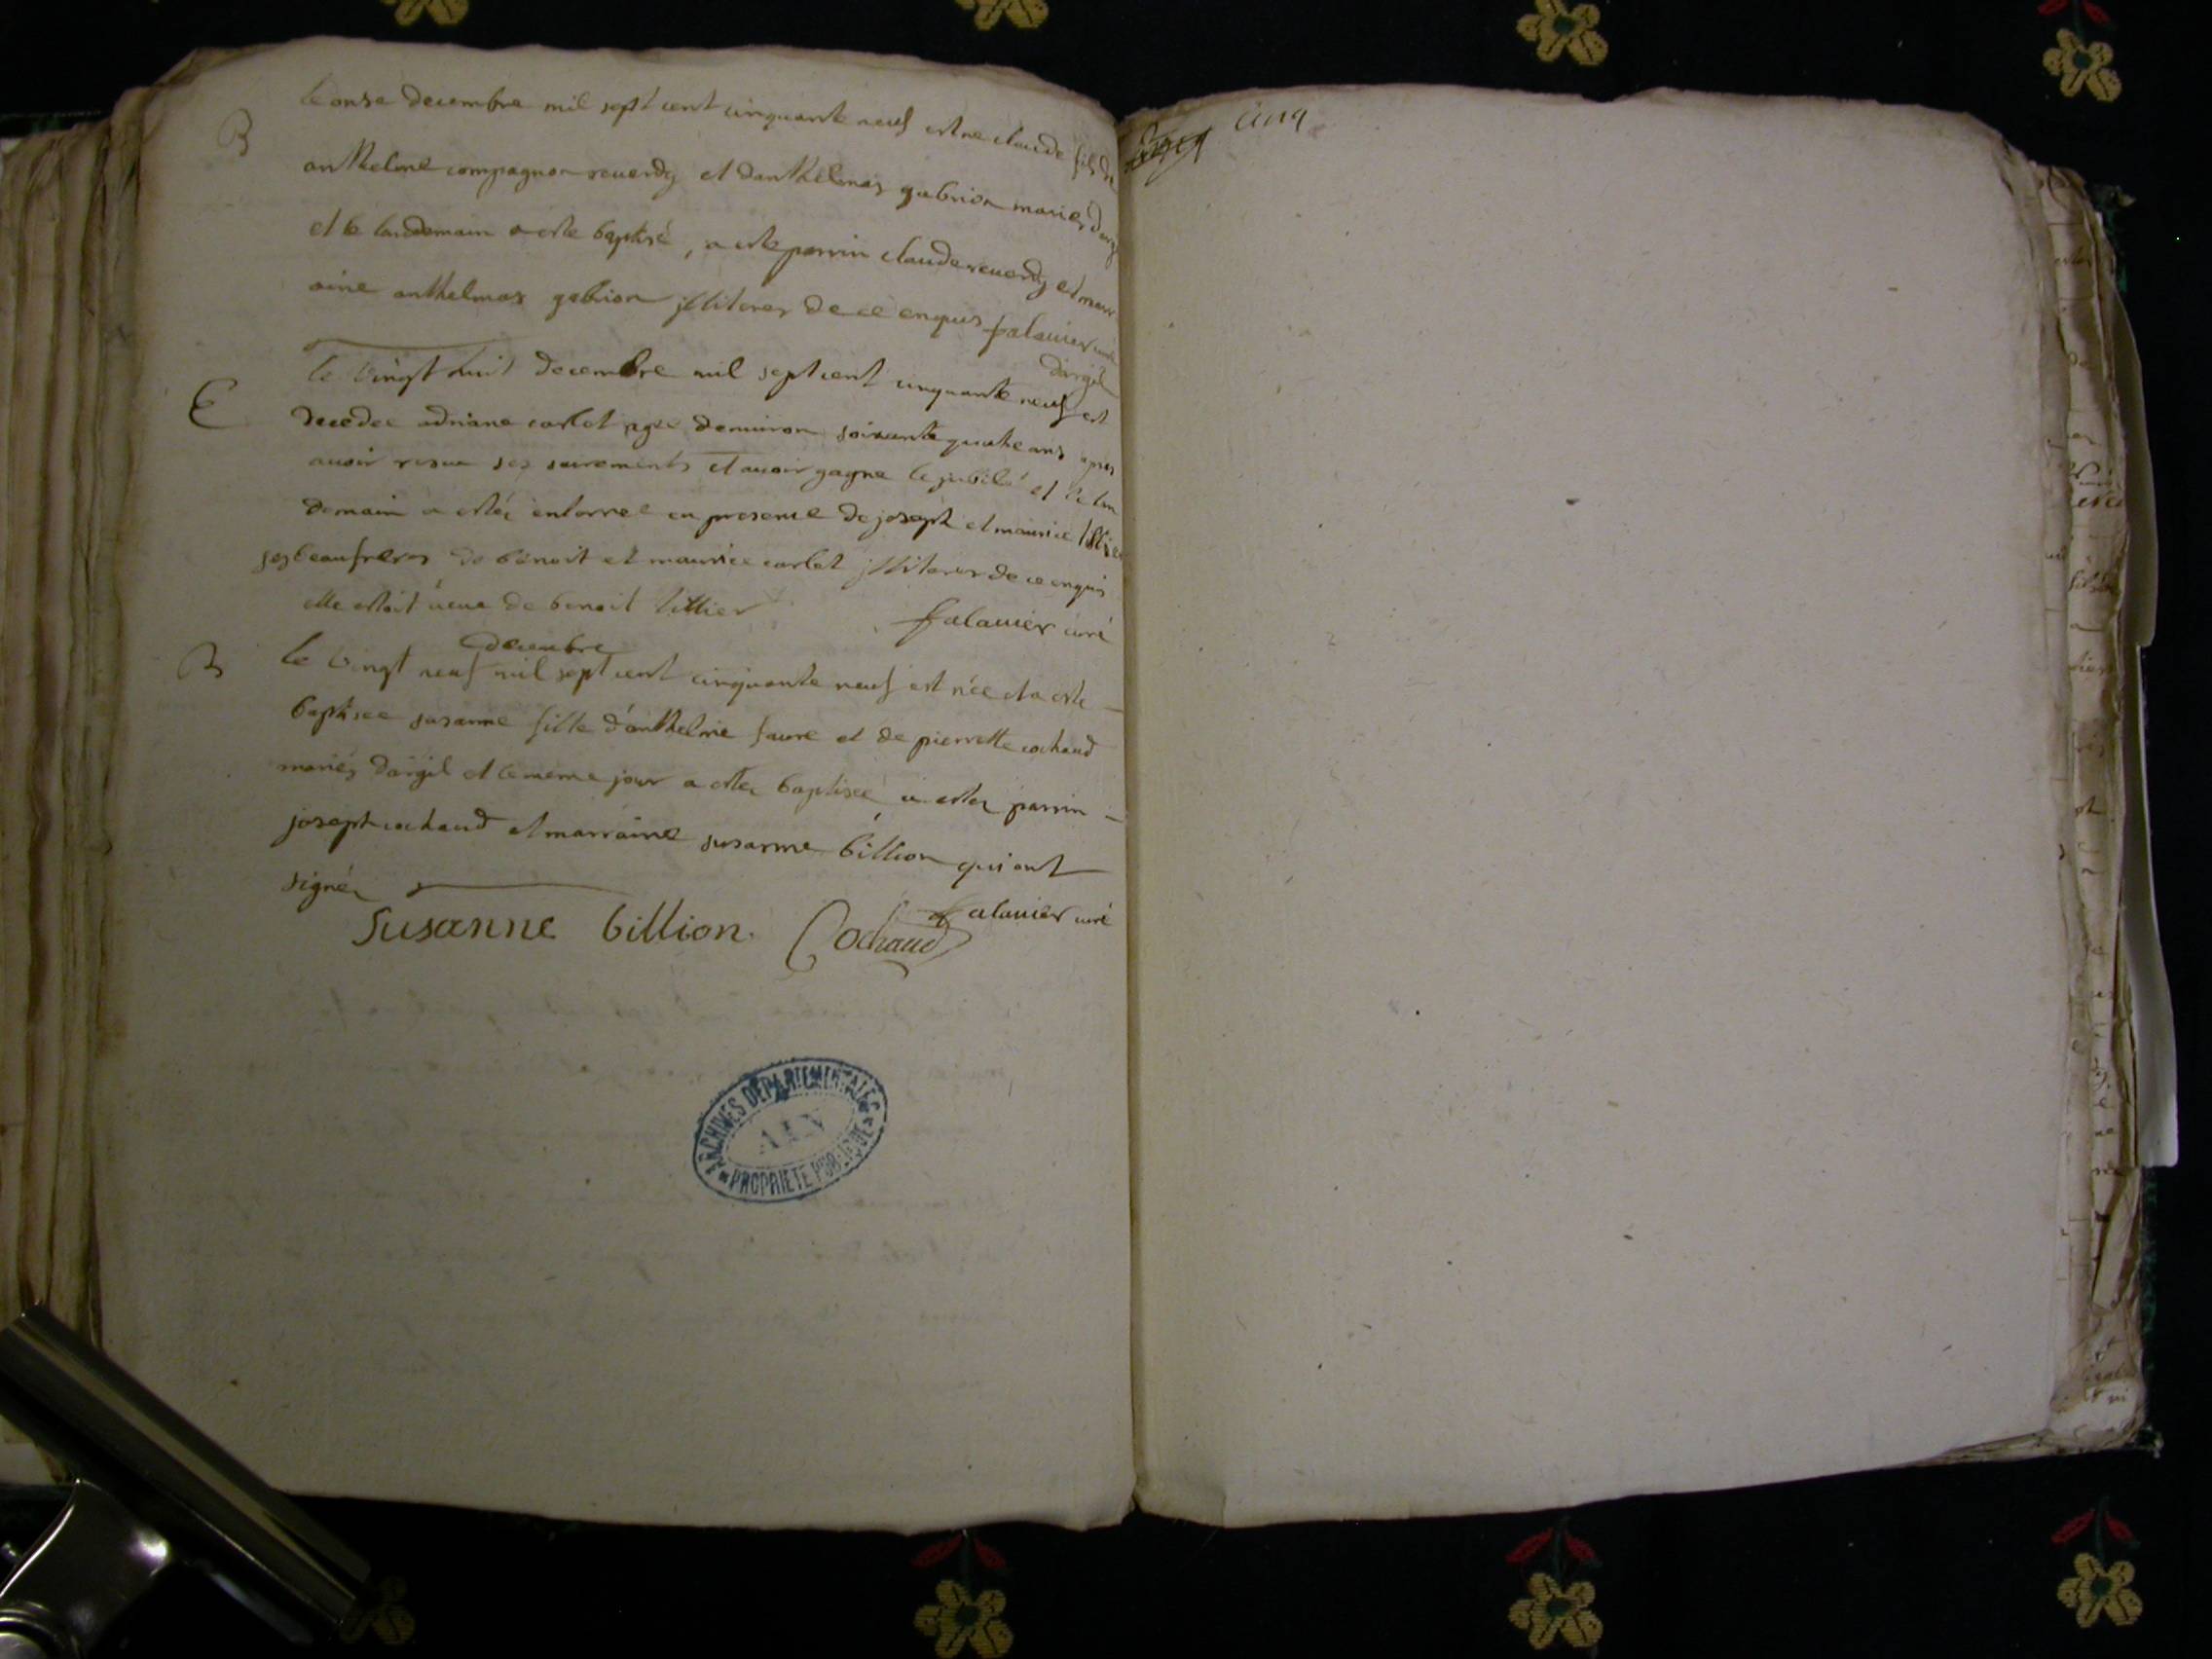 B
le onze decembre mil sept cent cinquante neuf est ne claude fils de
anthelme compagnon reuerdy et danthelmaz gabrion mariez
et le landemain a este baptisé, a este parrin claude reuerdy et marr
aine anthelmaz gabrion illiterez de ce enquis falauier
dargil
E
le vingt huit decembre mil sept cent cinquante neuf est
decedee adriane carlot agee denuiron soixante quatre ans apres
auoir resue ses sacrements et auoir gagne le jubilé et le lan
demain a estéz enterree en presence de joseph et maurice
ses beaufreres de benoit et maurice carlot illiterez de ce enquis
elle estoit veue de benoit littier falauier curé
B
decembre
le vingt neuf mil sept cent cinquante neuf est née et a este
baptisee susanne fille d'anthelme faure et de pierrette cochaud
mariés dargil et le meme jour a estez baptisee a estez parrin
joseph cochaud et marraine susanne billion qui ont
signéz
falauier curé
Susanne billion. Cochaud
ARCHIVES DÉPARTEMENTALES
AIN
PROPRIÉTÉ PUBLIQUE
cinq